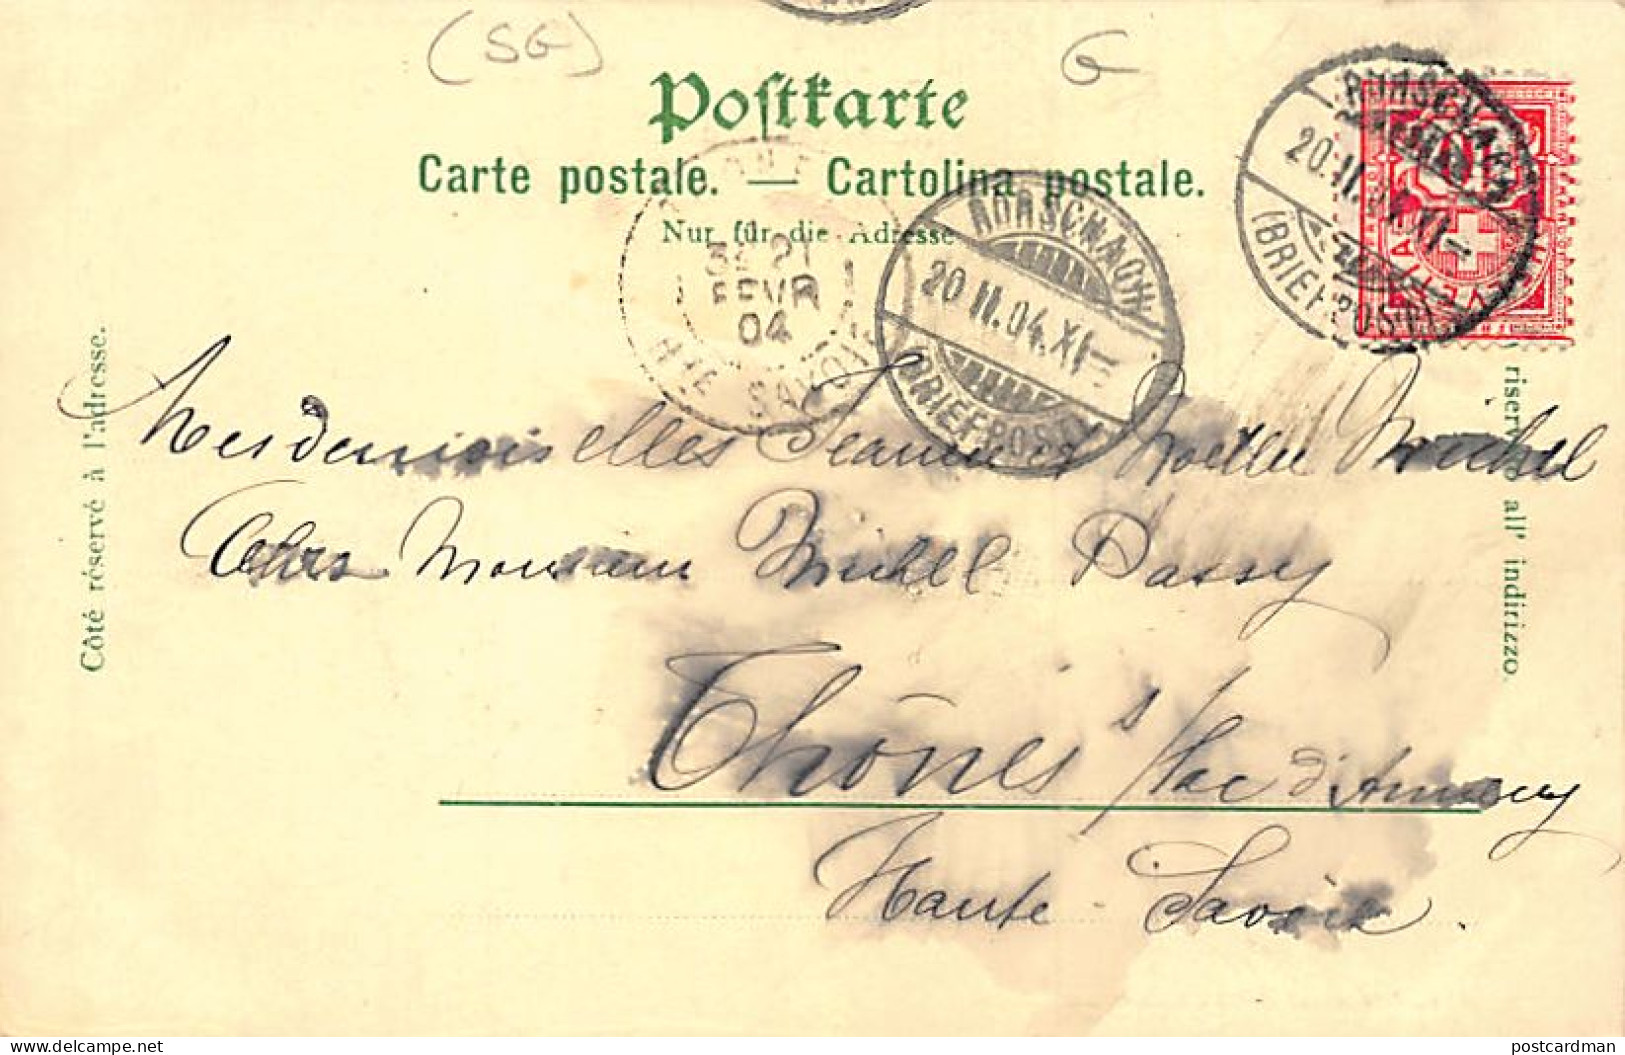 (SG)
G
Postkarte
Carte postale. — Cartolina postale.
Nur für die Adresse
RORSCHACH
20.II.04.XI–
(BRIEFPOST)
RORSCHACH
20.II.04.XI–
(BRIEFPOST)
21
FEVR
04
HTE SAVOIE
Côté réservé à l'adresse.
riservato all' indirizzo.
Mesdemoiselles Jeanne & Noëlle Michel
Chez Monsieur Michel Dassy
Thônes s/lac d'Annecy
Haute-Savoie.
www.delcampe.net
postcardman